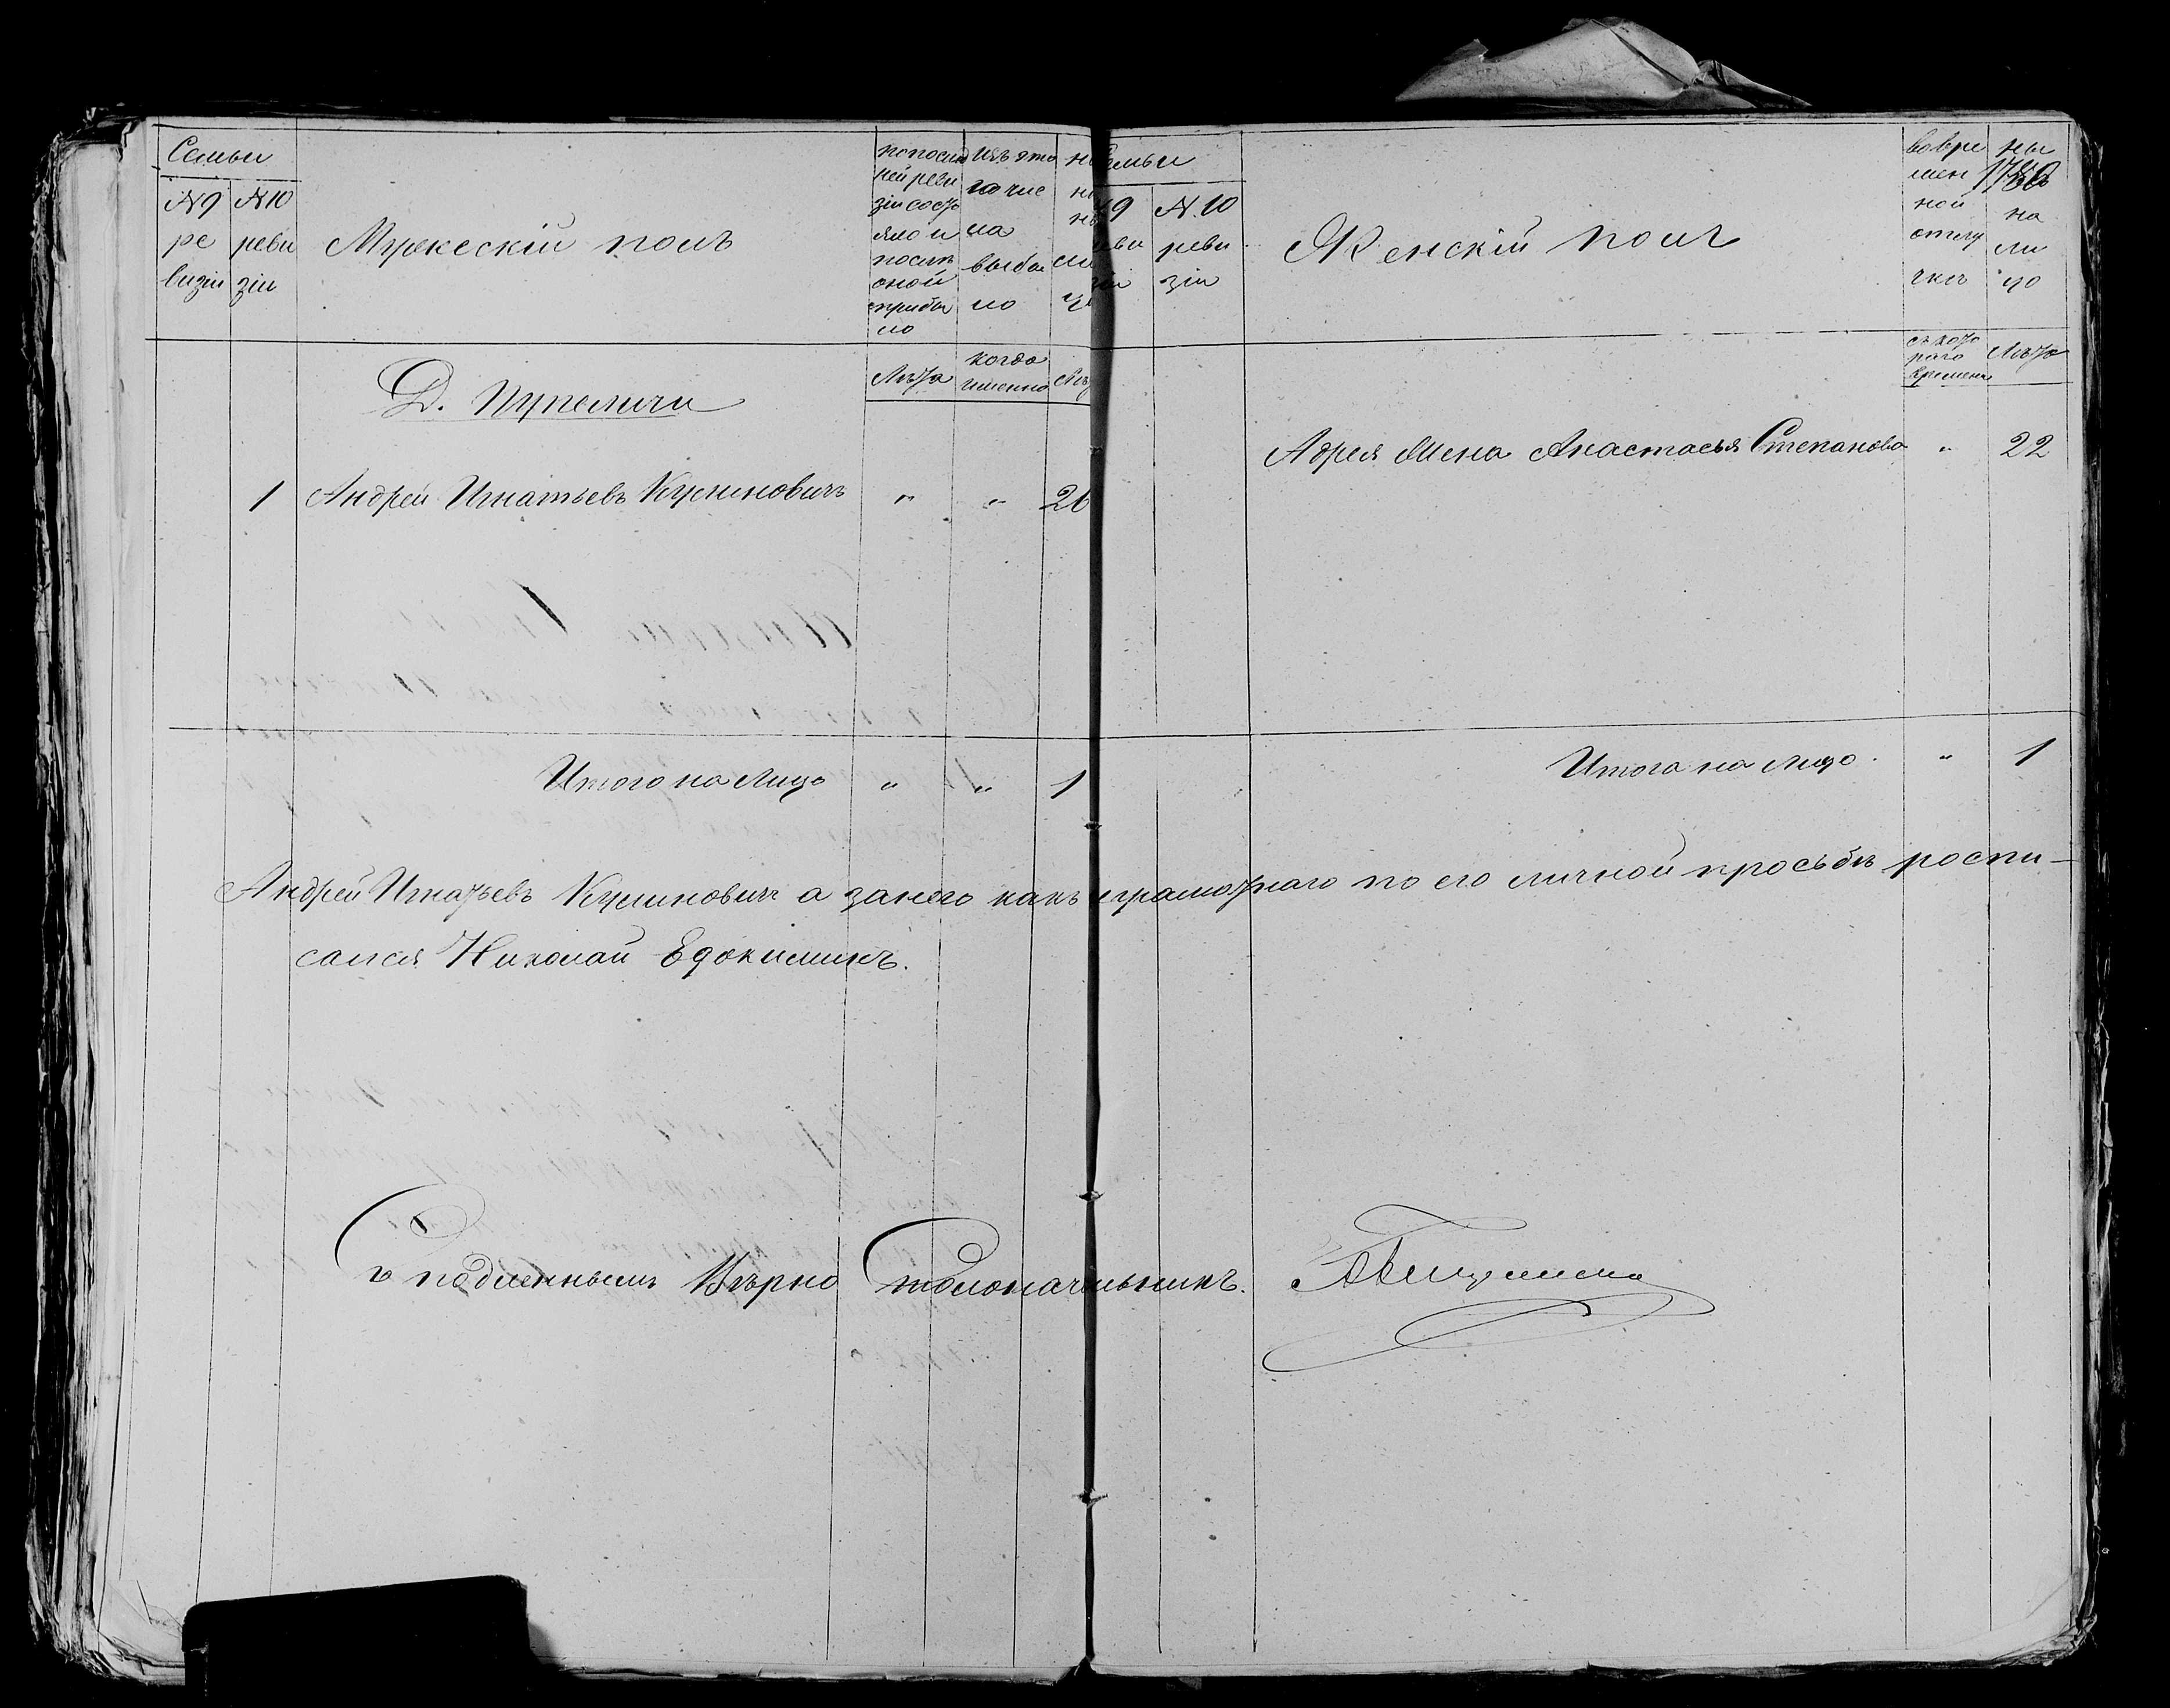 Семьи
№9 ре визіи
№10 реви зіи
Мужескій полъ
по послед ней реви зіи состо яло и послѣ оной прибы ло
изъ это го чис ла выбы ло
Лѣта
когда именно
Д. Пупеличи
1 Андрей Игнатьевъ Кулиновичъ " " 26
Итого на лицо " " 1
Семьи
№ 10 реви зіи
Женскій полъ
во вре мен ной отлу чкѣ
ны на ли цо
съ кото раго времени
Лѣта
Адрея Жена Анастасья Степанова " 22
Итого на лицо " 1
Андрей Игнатьевъ Кулиновичъ а за него какъ неграмотнаго по его личной просьбѣ роспи-
сался Николай Едокимикъ.
Съ подленнымъ Вѣрно Столоначальникъ.